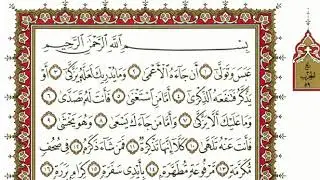 بِسْمِ ٱللَّهِ ٱلرَّحْمَٰنِ ٱلرَّحِيمِ
عَبَسَ وَتَوَلَّىٰٓ ١ أَن جَآءَهُ ٱلْأَعْمَىٰ ٢ وَمَا يُدْرِيكَ لَعَلَّهُۥ يَزَّكَّىٰٓ ٣ أَوْ
يَذَّكَّرُ فَتَنفَعَهُ ٱلذِّكْرَىٰٓ ٤ أَمَّا مَنِ ٱسْتَغْنَىٰ ٥ فَأَنتَ لَهُۥ تَصَدَّىٰ ٦
وَمَا عَلَيْكَ أَلَّا يَزَّكَّىٰ ٧ وَأَمَّا مَن جَآءَكَ يَسْعَىٰ ٨ وَهُوَ يَخْشَىٰ ٩
فَأَنتَ عَنْهُ تَلَهَّىٰ ١٠ كَلَّآ إِنَّهَا تَذْكِرَةٌ ١١ فَمَن شَآءَ ذَكَرَهُۥ ١٢ فِى صُحُفٍ
مُّكَرَّمَةٍ ١٣ مَّرْفُوعَةٍ مُّطَهَّرَةٍۭ ١٤ بِأَيْدِى سَفَرَةٍ ١٥ كِرَامٍۭ بَرَرَةٍ ١٦